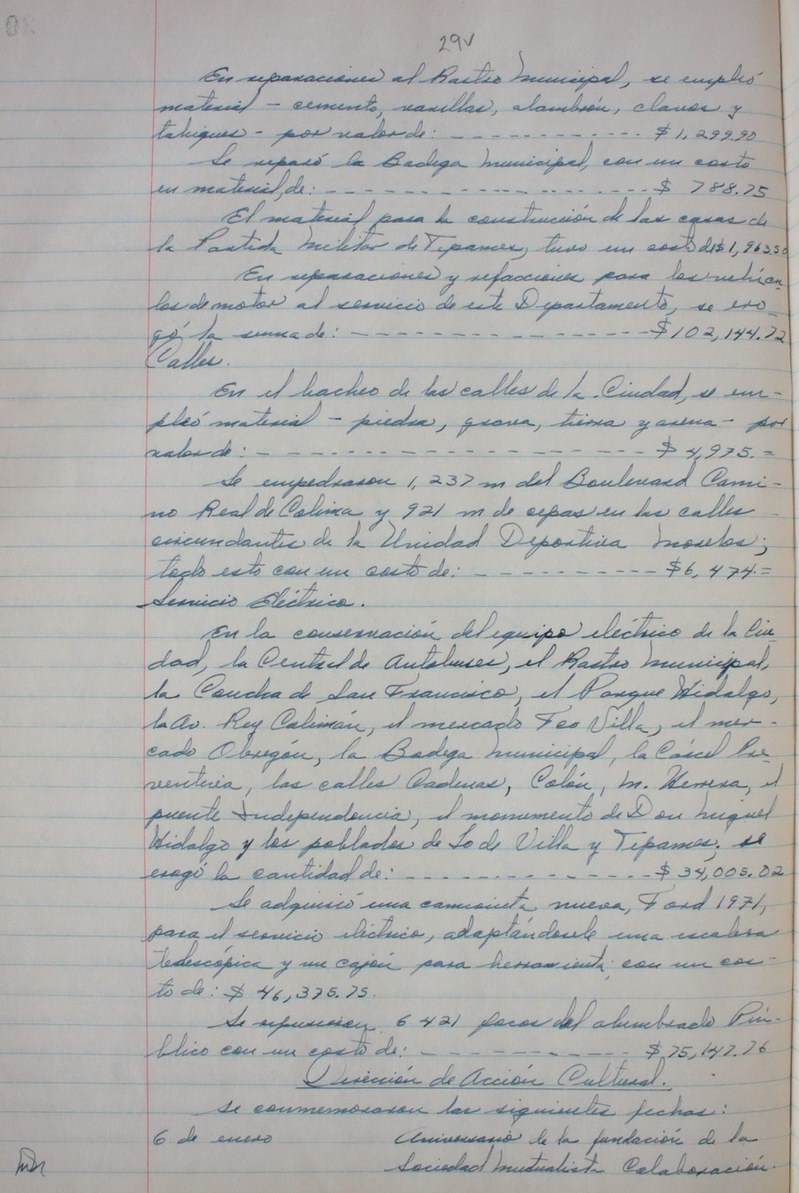 29v
En reparaciones al Rastro Municipal, se empleó
material - cemento, varillas, alambrón, clavos y
tabiques - por valor de: - - - - - - - - - - $ 1,299.90
Se reparó la Bodega Municipal, con un costo
en material, de: - - - - - - - - - - - - - - $ 788.75
El material para la construcción de las casas de
la Partida Militar de Tepames, tuvo un costo de $1,963.50
En reparaciones y refacciones para los vehícu-
los de motor al servicio de este Departamento, se ero-
gó la suma de: - - - - - - - - - - - - - $102,144.72
Calles.
En el bacheo de las calles de la Ciudad, se em-
pleó material - piedra, grava, tierra y arena - por
valor de: - - - - - - - - - - - - - - - - $ 4,975.=
Se empedraron 1,237 m del Boulevard Cami-
no Real de Colima y 921 m de cepas en las calles
circundantes de la Unidad Deportiva Morelos;
todo esto con un costo de: - - - - - - - - - $6,474.=
Servicio Eléctrico.
En la conservación del equipo eléctrico de la Ciu-
dad, la Central de Autobuses, el Rastro Municipal,
la Concha de San Francisco, el Parque Hidalgo,
la Av. Rey Colimán, el mercado Fco Villa, el mer-
cado Obregón, la Bodega Municipal, la Cárcel Pre-
ventiva, las calles Cadenas, Colón, M. Herrera, el
puente Independencia, el monumento de Don Miguel
Hidalgo y los poblados de Lo de Villa y Tepames; se
erogó la cantidad de: - - - - - - - - - - $ 34,005.02
Se adquirió una camioneta nueva, Ford 1971,
para el servicio eléctrico, adaptándosele una escalera
telescópica y un cajón para herramienta; con un cos-
to de: $ 46,375.75.
Se repusieron 6 421 focos del alumbrado Pú-
blico con un costo de: - - - - - - - - - $75,147.76
Dirección de Acción Cultural.
Se conmemoraron las siguientes fechas:
6 de enero Aniversario de la fundación de la
Sociedad Mutualista Colaboración.